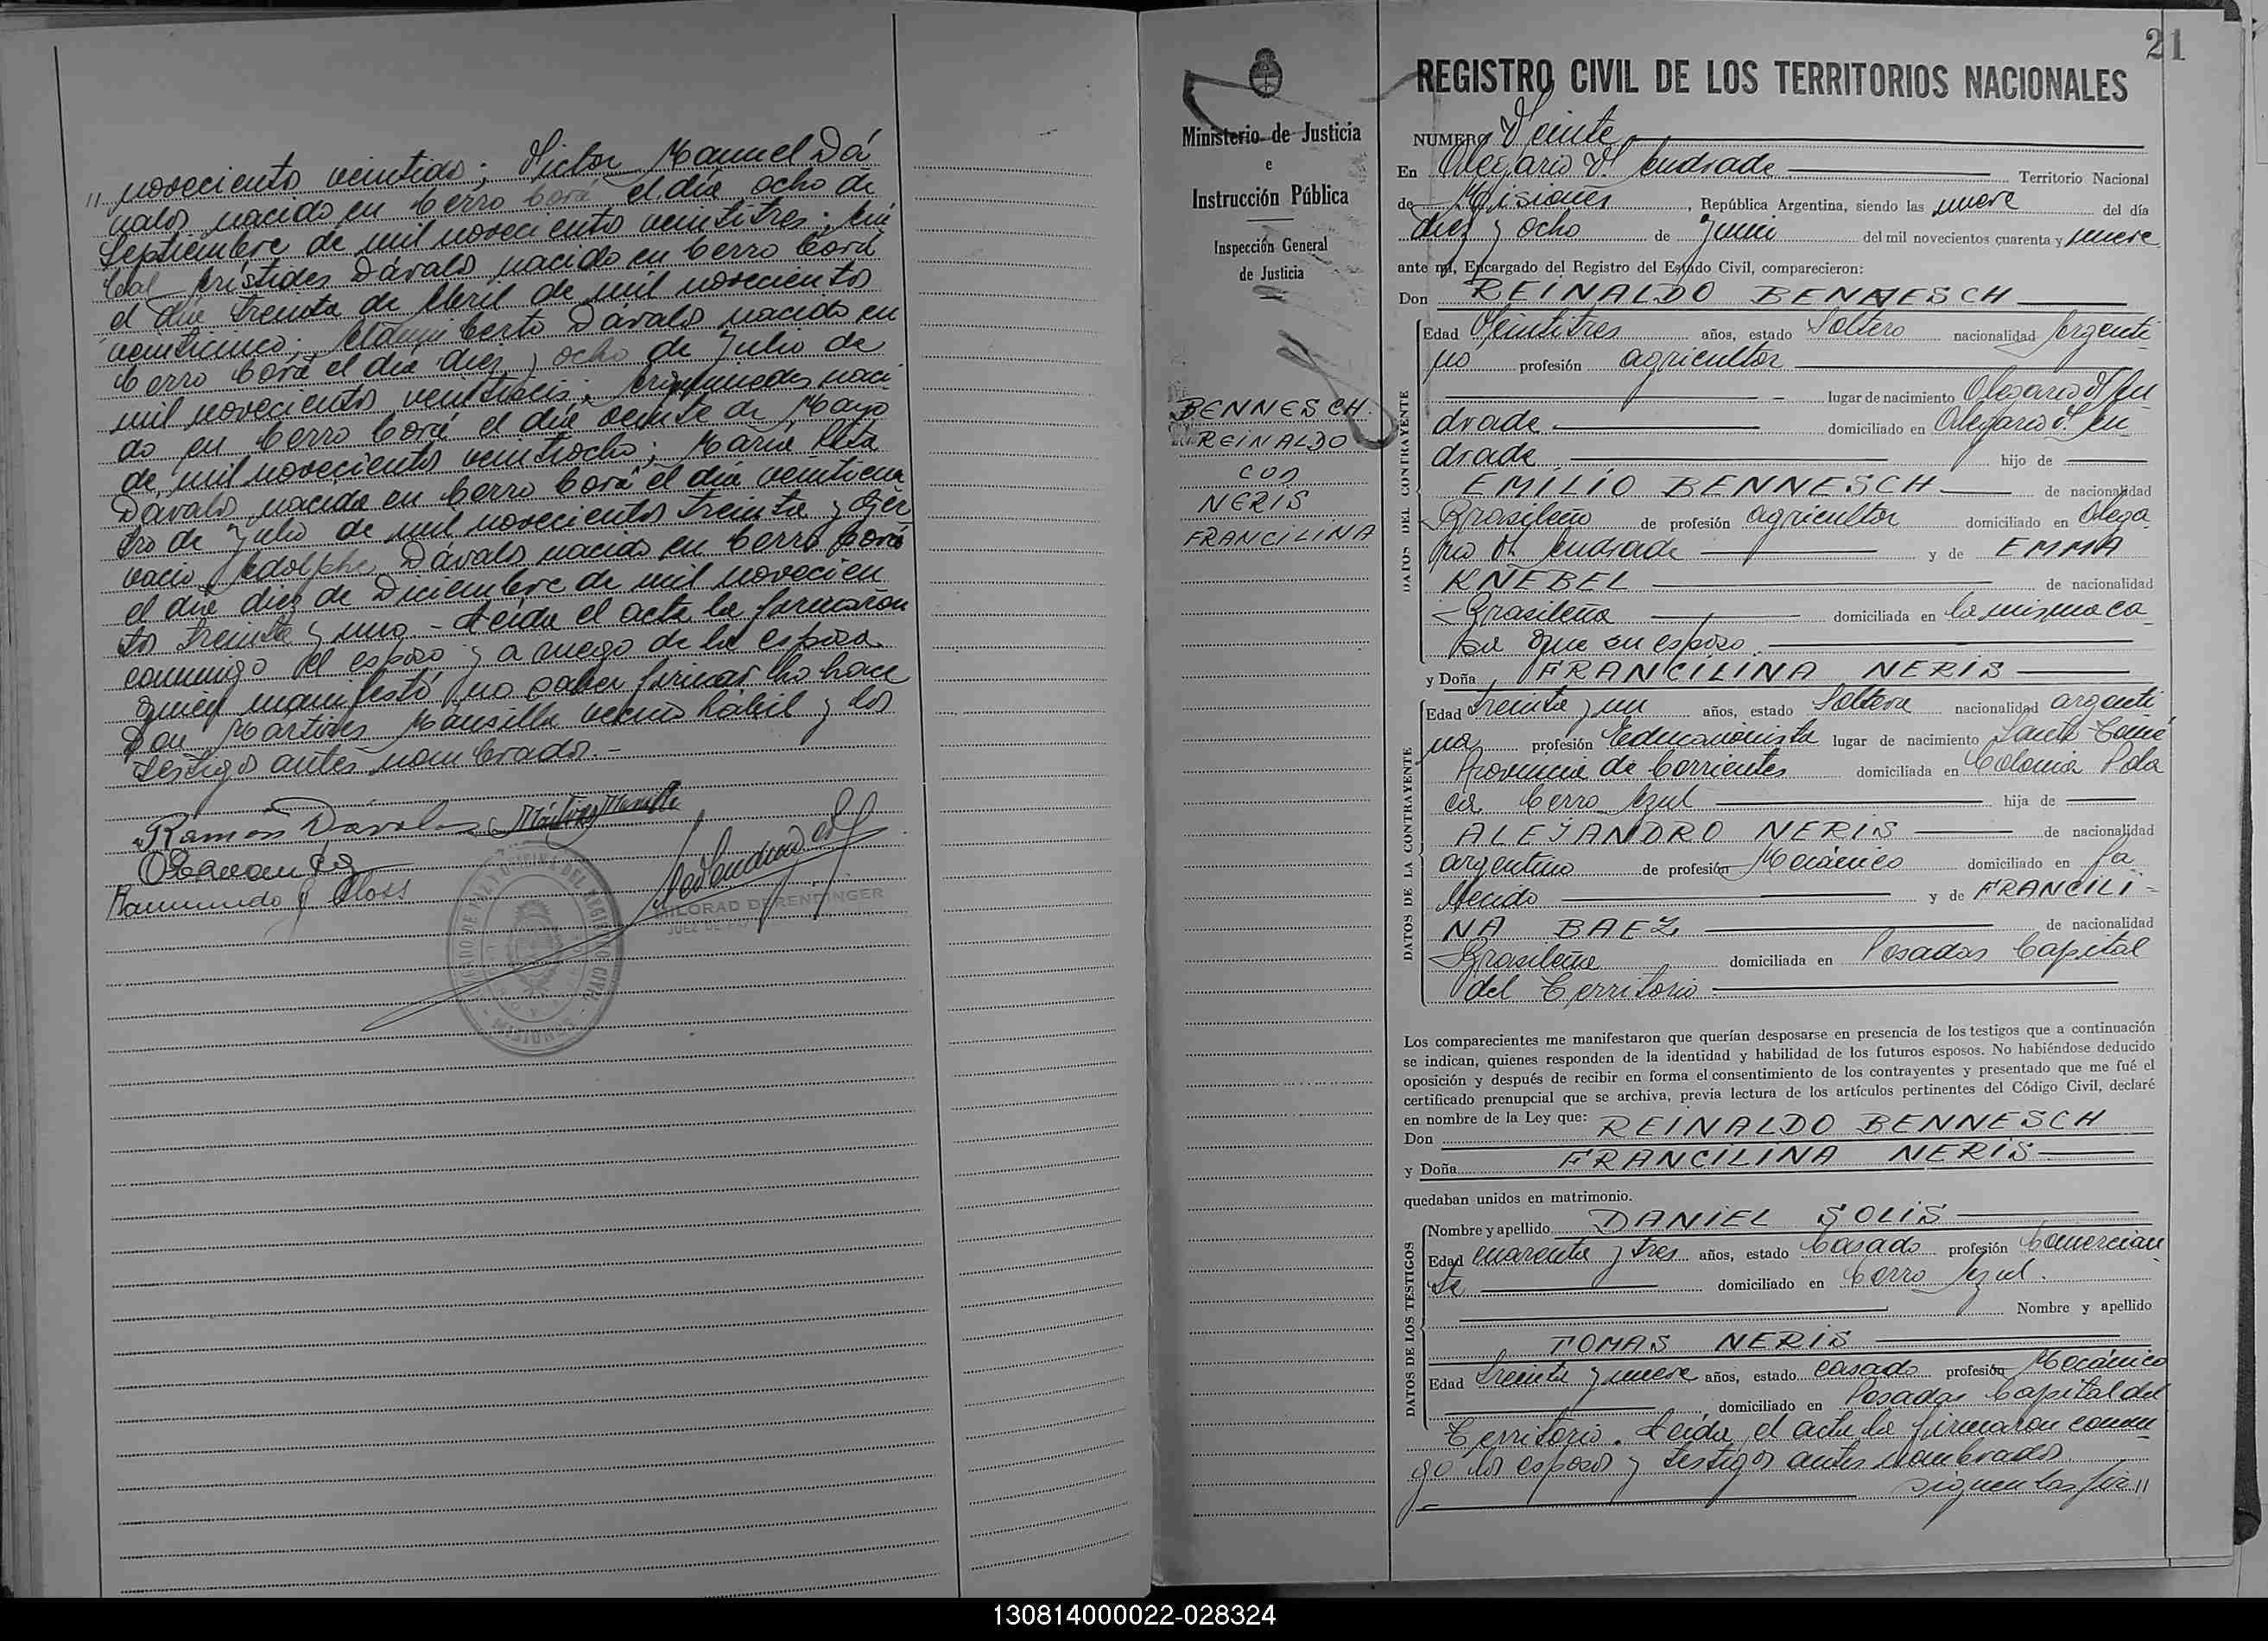 " novecientos veintidos; Victor Manuel Dá
valos nacido en Cerro Corá el día ocho de
Septiembre de mil novecientos veintitres;
Arístides Dávalos nacido en Cerro Corá
el día treinta de Abril de mil novecientos
veinticinco; Dávalos nacido en
Cerro Corá el día diez y ocho de Julio de
mil novecientos veintiseis; naci
do en Cerro Corá el día veinte de Mayo
de mil novecientos veintiocho; María Elsa
Dávalos nacida en Cerro Corá el día veinticua
tro de Julio de mil novecientos treinta y
Adolfo Dávalos nacido en Cerro Corá
el día diez de Diciembre de mil novecien
tos treinta y uno.- Leída el acta la firmaron
conmigo el esposo y a ruego de la esposa
quien manifestó no saber firmar lo hace
Don Mártires Mansilla vecino hábil y los
testigos antes nombrados.-
Ramón Dávalos Mártires Mansilla
Raimundo G Closs
MILORAD DERENDINGER
JUEZ DE PAZ
OFICINA DEL REGISTRO CIVIL
MISIONES
21
Ministerio de Justicia
e
Instrucción Pública
Inspección General
de Justicia
BENNESCH
REINALDO
con
NERIS
FRANCILINA
REGISTRO CIVIL DE LOS TERRITORIOS NACIONALES
NUMERO Veinte
En Olegario V. Andrade Territorio Nacional
de Misiones, República Argentina, siendo las nueve del día
diez y ocho de Junio del mil novecientos cuarenta y nueve
ante mí, Encargado del Registro del Estado Civil, comparecieron:
Don REINALDO BENNESCH
DATOS DEL CONTRAYENTE
Edad Veintitres años, estado Soltero nacionalidad Argenti
no profesión agricultor
lugar de nacimiento Olegario V. An
drade domiciliado en Olegario V. An
drade hijo de
EMILIO BENNESCH de nacionalidad
Brasileño de profesión agricultor domiciliado en Olega
rio V. Andrade y de EMMA
KNEBEL de nacionalidad
Brasileña domiciliada en la misma ca
sa que su esposo.
y Doña FRANCILINA NERIS
DATOS DE LA CONTRAYENTE
Edad treinta y un años, estado Soltera nacionalidad argenti
na profesión Educacionista lugar de nacimiento Santo Tomé
Provincia de Corrientes domiciliada en Colonia Pola
ca Cerro Azul hija de
ALEJANDRO NERIS de nacionalidad
argentino de profesión Mecánico domiciliado en fa
llecido y de FRANCILI-
NA BAEZ de nacionalidad
Brasileña domiciliada en Posadas Capital
del Territorio
Los comparecientes me manifestaron que querían desposarse en presencia de los testigos que a continuación
se indican, quienes responden de la identidad y habilidad de los futuros esposos. No habiéndose deducido
oposición y después de recibir en forma el consentimiento de los contrayentes y presentado que me fué el
certificado prenupcial que se archiva, previa lectura de los artículos pertinentes del Código Civil, declaré
en nombre de la Ley que:
Don REINALDO BENNESCH
y Doña FRANCILINA NERIS
quedaban unidos en matrimonio.
DATOS DE LOS TESTIGOS
Nombre y apellido DANIEL SOLIS
Edad cuarenta y tres años, estado Casado profesión Comercian
te domiciliado en Cerro Azul.
Nombre y apellido
TOMAS NERIS
Edad treinta y nueve años, estado casado profesión Mecánico
domiciliado en Posadas Capital del
Territorio. Leída el acta la firmaron conmi
go los esposos y testigos antes nombrados.
siguen las fir"
130814000022-028324